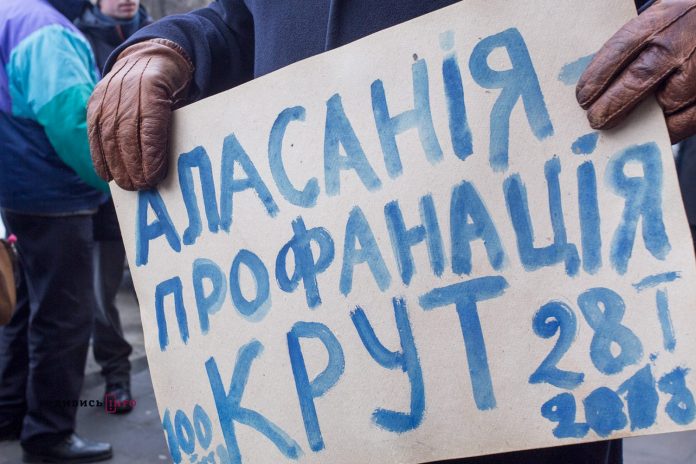 АЛАСАНІЯ-
ПРОФАНАЦІЯ
100 КРУТ 28-І
2018